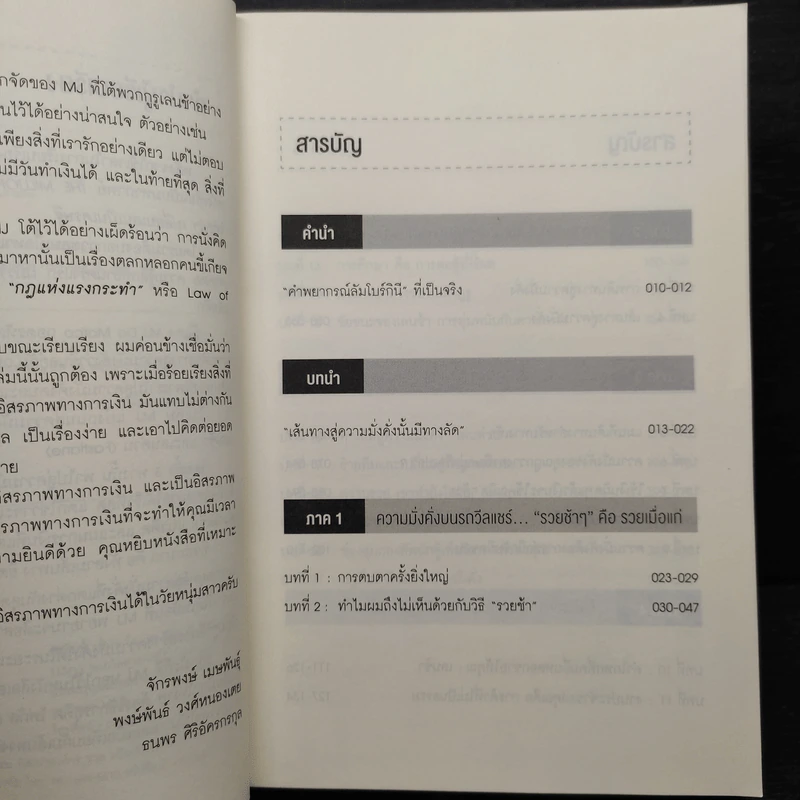 กจัดของ MJ ที่โต้พวกกูรูเลนช้าอย่าง
นไว้ได้อย่างน่าสนใจ ตัวอย่างเช่น
เพียงสิ่งที่เรารักอย่างเดียว แต่ไม่ตอบ
ไม่มีวันทำเงินได้ และในท้ายที่สุด สิ่งที่
MJ โต้ไว้ได้อย่างเผ็ดร้อนว่า การนั่งคิด
มาหานั้นเป็นเรื่องตลกหลอกคนขี้เกียจ
"กฎแห่งแรงกระทำ" หรือ Law of
บขณะเรียบเรียง ผมค่อนข้างเชื่อมั่นว่า
ล่มนี้นั้นถูกต้อง เพราะเมื่อร้อยเรียงสิ่งที่
อิสรภาพทางการเงิน มันแทบไม่ต่างกัน
ล เป็นเรื่องง่าย และเอาไปคิดต่อยอด
าย
อิสรภาพทางการเงิน และเป็นอิสรภาพ
รภาพทางการเงินที่จะทำให้คุณมีเวลา
ามยินดีด้วย คุณหยิบหนังสือที่เหมาะ
อิสรภาพทางการเงินได้ในวัยหนุ่มสาวครับ
จักรพงษ์ เมษพันธุ์
พงษ์พันธ์ วงศ์หนองเตย
ธนพร ศิริอัครกรกุล
สารบัญ
คำนำ
"คำพยากรณ์ลัมโบร์กินี" ที่เป็นจริง 010-012
บทนำ
"เส้นทางสู่ความมั่งคั่งนั้นมีทางลัด" 013-022
ภาค 1 ความมั่งคั่งบนรถวีลแชร์... "รวยช้าๆ" คือ รวยเมื่อแก่
บทที่ 1 : การตบตาครั้งยิ่งใหญ่ 023-029
บทที่ 2 : ทำไมผมถึงไม่เห็นด้วยกับวิธี "รวยช้า" 030-047